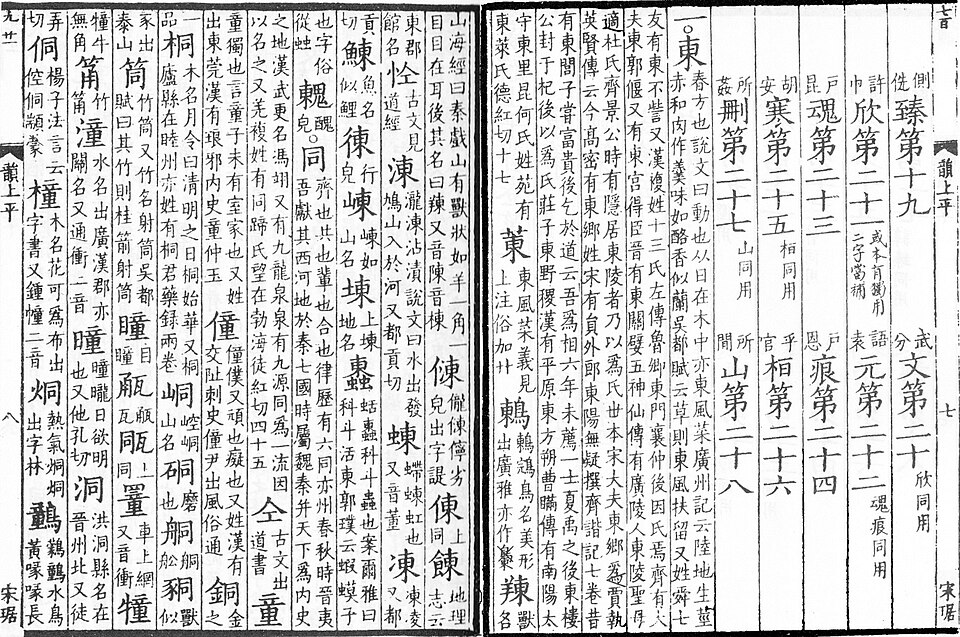 七百
側詵 臻第十九 武分 文第二十 欣同用
許巾 欣第二十一 或本有獨用二字當補 語袁 元第二十二 魂痕同用
戶昆 魂第二十三 戶恩 痕第二十四
胡安 寒第二十五 桓同用 乎官 桓第二十六
所姦 刪第二十七 山同用 所閒 山第二十八
一。東 春方也說文曰動也从日在木中亦東風菜廣州記云陸地生莖赤和肉作羹味如酪香似蘭吳都賦云草則東風扶留又姓舜七
友有東不訾又漢複姓十三氏左傳魯卿東門襄仲後因氏焉齊有大夫東郭偃又有東宮得臣晉有東關嬖五神仙傳有廣陵人東陵聖母
適杜氏齊景公時有隱居東陵者乃以爲氏世本宋大夫東鄉爲賈執英賢傳云今高密有東鄉姓宋有員外郎東陽無疑撰齊諧記七卷昔
有東閭子嘗富貴後乞於道云吾爲相六年未薦一士夏禹之後東樓公封于杞後以爲氏莊子東野稷漢有平原東方朔曹瞞傳有南陽太
守東里昆何氏姓苑有東萊氏德紅切十七 菄 東風菜義見上注俗加艹 鶇 鶇鵍鳥名美形出廣雅亦作 䍶 獸名
韻上平
七
宋琚
山海經曰秦戲山有獸狀如羊一角一目目在耳後其名曰䍶又音陳音棟 𠍀 儱𠍀儜劣皃出字諟 倲 上同 餗 地理志云
東郡館名 㣠 古文見道經 涷 瀧涷沾漬說文曰水出發鳩山入於河又都貢切 蝀 螮蝀虹也又音董 凍 凍凌又都
貢切 鯟 魚名似鯉 徚 行皃 崠 崠如山名 埬 上埬地名 𧓕 蛞𧓕科斗蟲也案爾雅曰科斗活東郭璞云蝦蟆子
也字俗從䖵 䰤 醜皃。同 齊也共也輩也合也律歷有六同亦州春秋時晉夷吾獻其西河地於秦七國時屬魏秦并天下爲內史
之地漢武更名馮翊又有九龍泉泉有九源同爲一流因以名之又羌複姓有同蹄氏望在勃海徒紅切四十五 仝 古文出道書 童
童獨也言童子未有室家也又姓出東莞漢有琅邪內史童仲玉 僮 僮僕又頑也癡也又姓漢有交阯刺史僮尹出風俗通 銅 金之
一品 桐 木名月令曰清明之日桐始華又桐廬縣在睦州亦姓有桐君藥錄兩卷 峒 崆峒山名 硐 磨也 䑸 䑸船 狪 獸似
豕出泰山 筒 竹筒又竹名射筒吳都賦曰其竹則桂箭射筒 瞳 目瞳 㼧 㼿瓦 㼿 上同 罿 車上網又音衝 犝
犝牛無角 筩 竹筩 潼 水名出廣漢郡亦關名又通衝二音 曈 曈曨日欲明也又他孔切 洞 洪洞縣名在晉州北又徒
弄切 侗 楊子法言云倥侗顓蒙 橦 木名花可爲布出字書又鍾幢二音 烔 熱氣烔烔出字林 鸏 鸏鶴水鳥黃喙喙長
九廿一
韻上平
八
宋琚